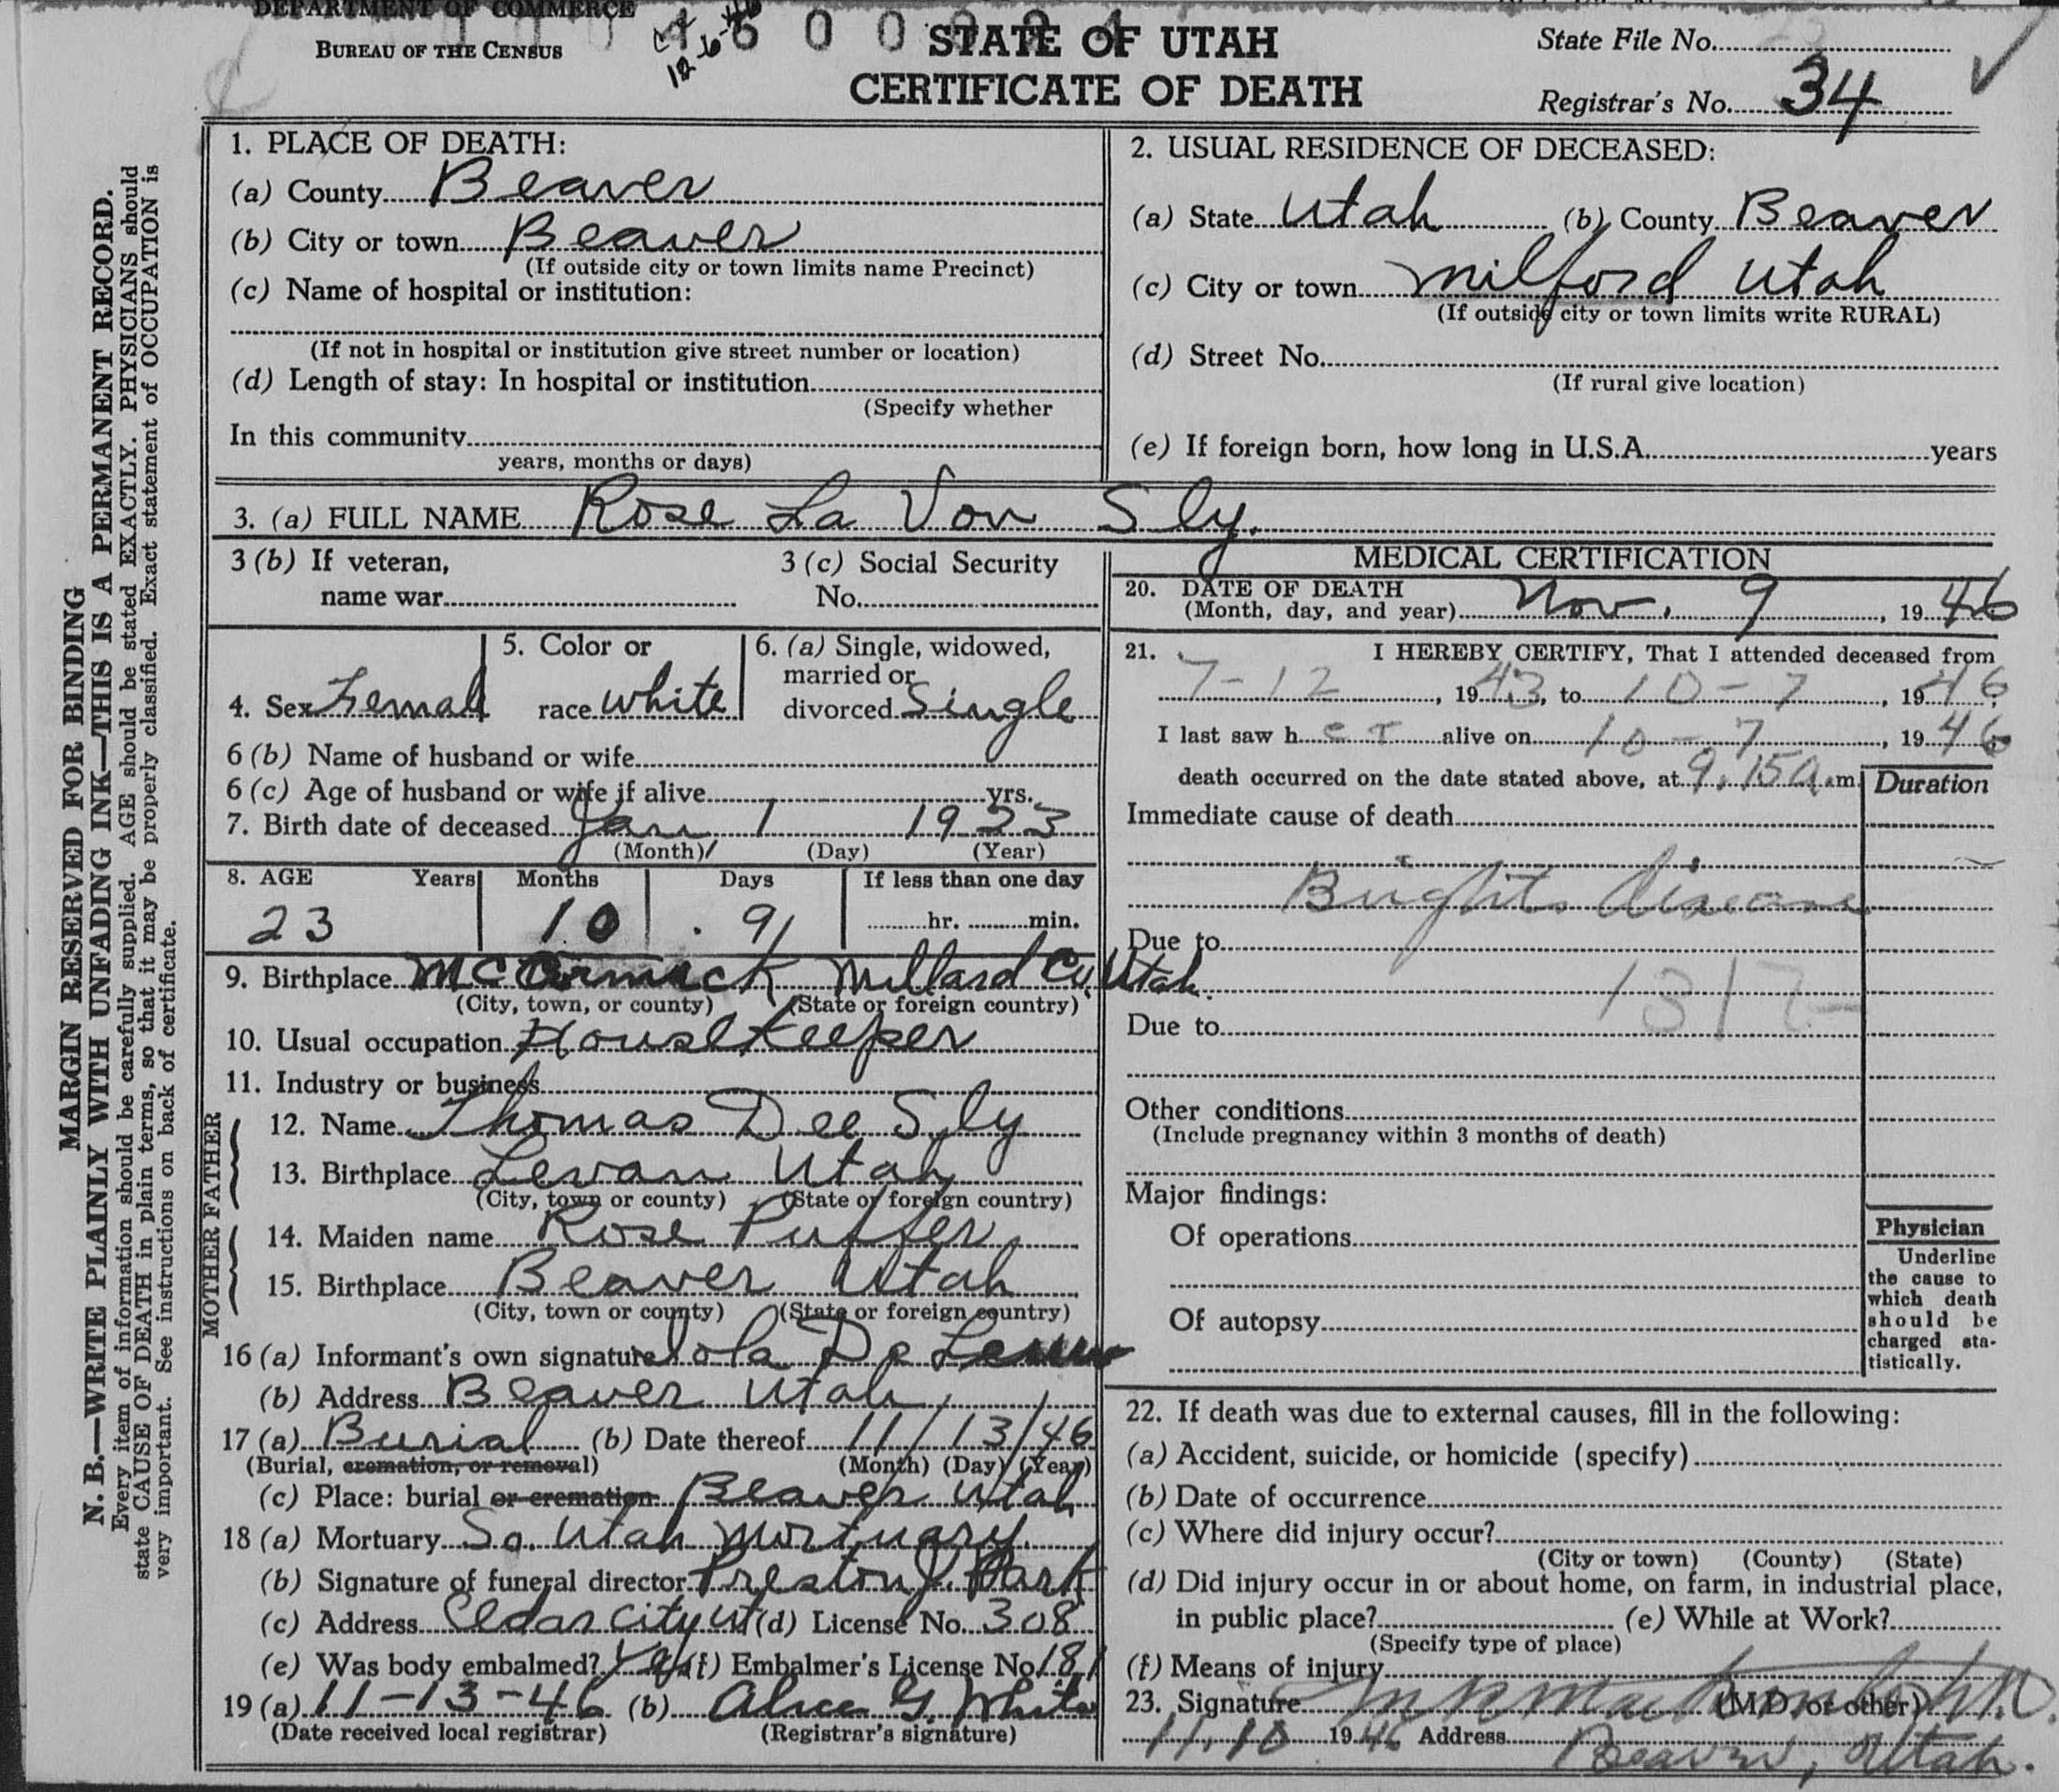 DEPARTMENT OF COMMERCE
BUREAU OF THE CENSUS
12-6-46
STATE OF UTAH
CERTIFICATE OF DEATH
State File No.
Registrar's No. 34
MARGIN RESERVED FOR BINDING
N. B.—WRITE PLAINLY WITH UNFADING INK—THIS IS A PERMANENT RECORD.
Every item of information should be carefully supplied. AGE should be stated EXACTLY. PHYSICIANS should
state CAUSE OF DEATH in plain terms, so that it may be properly classified. Exact statement of OCCUPATION is
very important. See instructions on back of certificate.
1. PLACE OF DEATH:
(a) County Beaver
(b) City or town Beaver
(If outside city or town limits name Precinct)
(c) Name of hospital or institution:
(If not in hospital or institution give street number or location)
(d) Length of stay: In hospital or institution
(Specify whether
In this community
years, months or days)
2. USUAL RESIDENCE OF DECEASED:
(a) State Utah (b) County Beaver
(c) City or town Milford Utah
(If outside city or town limits write RURAL)
(d) Street No.
(If rural give location)
(e) If foreign born, how long in U.S.A. years
3. (a) FULL NAME Rose La Von Sly.
3 (b) If veteran,
name war
3 (c) Social Security
No.
4. Sex Femal
5. Color or
race White
6. (a) Single, widowed,
married or
divorced Single
6 (b) Name of husband or wife
6 (c) Age of husband or wife if alive yrs.
7. Birth date of deceased Jan 1 1923
(Month) (Day) (Year)
8. AGE Years Months Days If less than one day
23 10 9 hr. min.
9. Birthplace McCormick Millard Co, Utah.
(City, town, or county) (State or foreign country)
10. Usual occupation Housekeeper
11. Industry or business
FATHER
12. Name Thomas Dee Sly
13. Birthplace Levan Utah
(City, town or county) (State or foreign country)
MOTHER
14. Maiden name Rose Puffer
15. Birthplace Beaver Utah
(City, town or county) (State or foreign country)
16 (a) Informant's own signature Iola De
(b) Address Beaver Utah
17 (a) Burial (b) Date thereof 11/13/46
(Burial, cremation, or removal) (Month) (Day) (Year)
(c) Place: burial or cremation Beaver Utah
18 (a) Mortuary So. Utah Mortuary.
(b) Signature of funeral director Preston J. Park
(c) Address Cedar City Ut (d) License No. 308
(e) Was body embalmed? Yes (f) Embalmer's License No. 181
19 (a) 11-13-46 (b) Alice G. White
(Date received local registrar) (Registrar's signature)
MEDICAL CERTIFICATION
20. DATE OF DEATH
(Month, day, and year) Nov. 9, 1946
21. I HEREBY CERTIFY, That I attended deceased from
7-12, 1943, to 10-7, 1946;
I last saw her alive on 10-7, 1946
death occurred on the date stated above, at 9:15a.m.
Duration
Immediate cause of death
Brights disease
Due to
131
Due to
Other conditions
(Include pregnancy within 3 months of death)
Major findings:
Of operations
Of autopsy
Physician
Underline
the cause to
which death
should be
charged sta-
tistically.
22. If death was due to external causes, fill in the following:
(a) Accident, suicide, or homicide (specify)
(b) Date of occurrence
(c) Where did injury occur?
(City or town) (County) (State)
(d) Did injury occur in or about home, on farm, in industrial place,
in public place? (e) While at Work?
(Specify type of place)
(f) Means of injury
23. Signature (M.D. or other)
11.10 1946 Address Beaver, Utah.